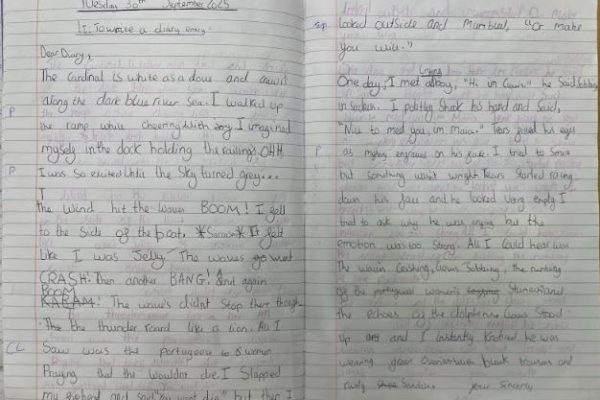 Tuesday 30th September 2025
LI: To write a diary entry
Dear Diary,
The cardinal is white as a dove and
along the dark blue river sea. I walked up
the ramp while cheering with joy I imagined
myself in the dock holding the railings. OHH
P
I was so excited until the sky turned grey...
P
I
the wind hit the waves BOOM! I fell
to the side of the boat. *Scream* It felt
like I was Jelly. The waves went
CRASH! Then another BANG! And again
BOOM
KABAM! The waves didnt stop there though
The the thunder roard like a lion. All I
CL
Saw was the portuguese women
Praying that the wouldnt die. I Slapped
my and said "You wont die" but then I
Sp
looked outside and Mumbled, "Or make
you will."
One day, I met a boy, "Hi im Gowin." he said
in . I politly Shok his hand and Said,
"Nice to med you, im Maia." Tears his eyes
P
as on his face. I tried to Smile
but somthing wasn't wright Tears Started racing
down his face and he looked very emty I
tried to ask why he was crying but the
emotion was too strong. All I could hear was
The waves Crashing, Gowins Sobbing, the
of the portuguese women's and
the echoes of the dolphins. Gowin Stood
up and I instantly he was
wearing with black trousers and
Sandals. your sincerly